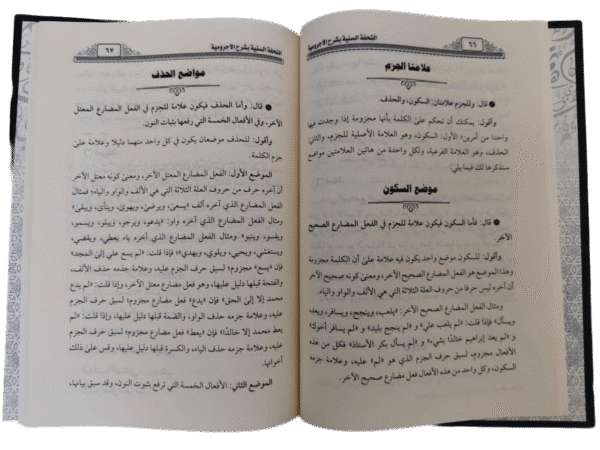 ٦٦
التحفة السنية بشرح الآجرومية
علامتا الجزم
● قال: وللجزم علامتان: السكون، والحذف.
وأقول: يمكنك أن تحكم على الكلمة بأنها مجزومة إذا وجدت فيها
واحدا من أمرين؛ الأول: السكون، وهو العلامة الأصلية للجزم، والثاني:
الحذف، وهو العلامة الفرعية، ولكل واحدة من هاتين العلامتين مواضع
سنذكرها لك فيما يلي:
موضع السكون
● قال: فأما السكون فيكون علامة للجزم في الفعل المضارع الصحيح
الآخر.
وأقول: للسكون موضع واحد يكون فيه علامة على أن الكلمة مجزومة
وهذا الموضع هو الفعل المضارع الصحيح الآخر، ومعنى كونه صحيح الآخر
أن آخره ليس حرفا من حروف العلة الثلاثة التي هي الألف والواو والياء.
ومثال الفعل المضارع الصحيح الآخر: «يلعب، وينجح، ويسافر، ويعد،
ويسأل» فإذا قلت: «لم يلعب علي» و «لم ينجح بليد» و «لم يسافر أخوك»
و «لم يعد إبراهيم خالدًا بشيء» و «لم يسأل بكر الأستاذ» فكل من هذه
الأفعال مجزوم، لسبق حرف الجزم الذي هو «لم» عليه، وعلامة جزمه
السكون، وكل واحد من هذه الأفعال فعل مضارع صحيح الآخر.
التحفة السنية بشرح الآجرومية
٦٧
مواضع الحذف
● قال: وأما الحذف فيكون علامة للجزم في الفعل المضارع المعتل
الآخر، وفي الأفعال الخمسة التي رفعها بثبات النون.
وأقول: للحذف موضعان يكون في كل واحد منهما دليلا وعلامة على
جزم الكلمة.
الموضع الأول: الفعل المضارع المعتل الآخر، ومعنى كونه معتل الآخر
أن آخره حرف من حروف العلة الثلاثة التي هي الألف والواو والياء؛ فمثال
الفعل المضارع الذي آخره ألف «يسعى، ويرضى، ويهوى، وينأى، ويبقى»
ومثال الفعل المضارع الذي آخره واو: «يدعو، ويرجو، ويبلو، ويسمو،
ويقسو، وينبو» ومثال الفعل المضارع الذي آخره ياء يعطي، ويقضي،
ويستغشي، ويحيي، ويلوي، ويهدي»؛ فإذا قلت: «لم يسع علي إلى المجد»
فإن «يسع» مجزوم؛ لسبق حرف الجزم عليه، وعلامة جذمه حذف الألف،
والفتحة قبلها دليل عليها، وهو فعل مضارع معتل الآخر، وإذا قلت: «لم يدع
محمد إلا إلى الحق» فإن «يدع» فعل مضارع مجزوم؛ لسبق حرف الجزم
عليه، وعلامة جزمه حذف الواو، والضمة قبلها دليل عليها، وإذا قلت: «لم
يعط محمد إلا خالدًا» فإن «يعط» فعل مضارع مجزوم؛ لسبق حرف الجزم
عليه، وعلامة جزمه حذف الياء، والكسرة قبلها دليل عليها، وقس على ذلك
أخواتها.
الموضع الثاني: الأفعال الخمسة التي ترفع بثبوت النون، وقد سبق بيانها،